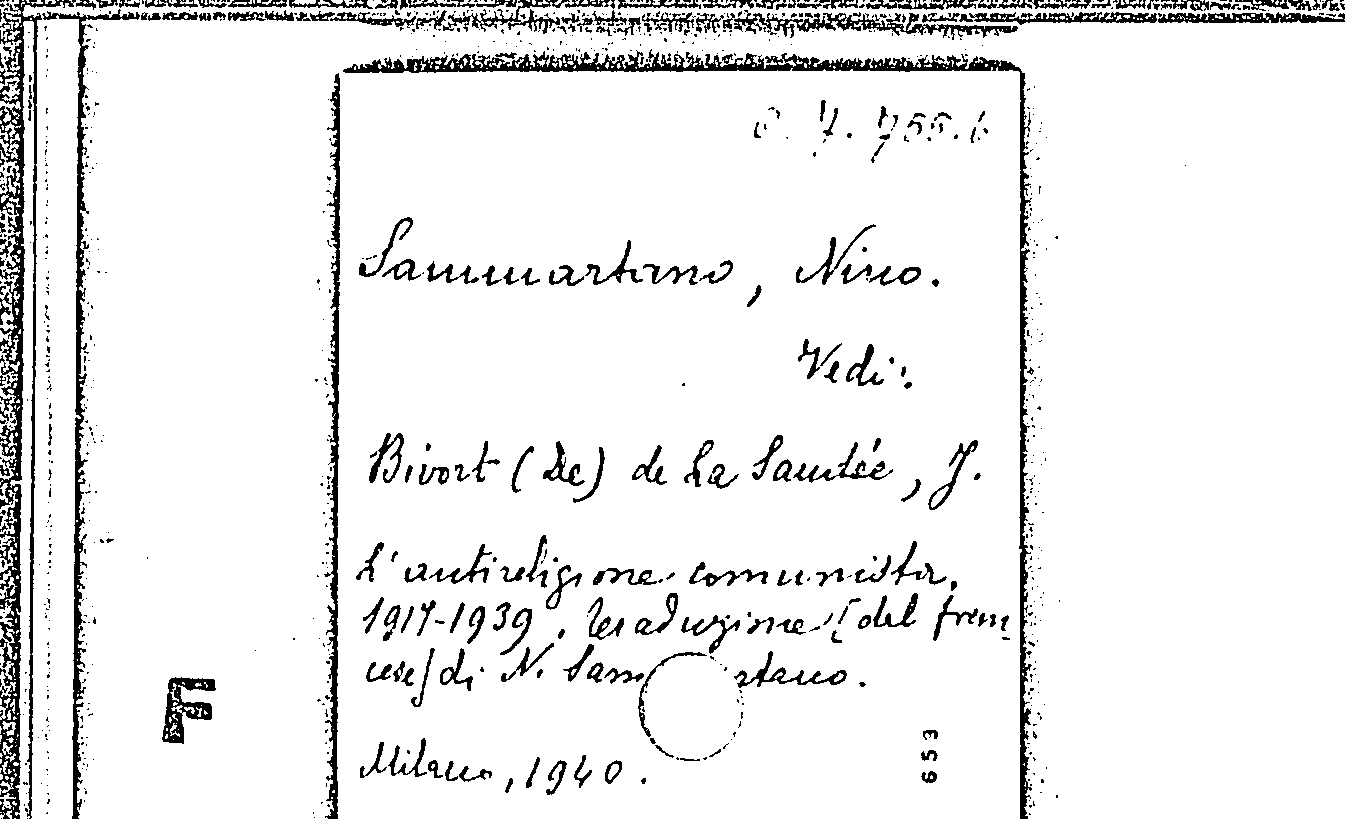 C. 7. 755. 6
Sammartano, Nino.
Vedi:
Bivort (De) de La Saudée, J.
L'antireligione comunista.
1917-1939. Traduzione [del fran
cese] di N. Sam rtano.
Milano, 1940.
F
653